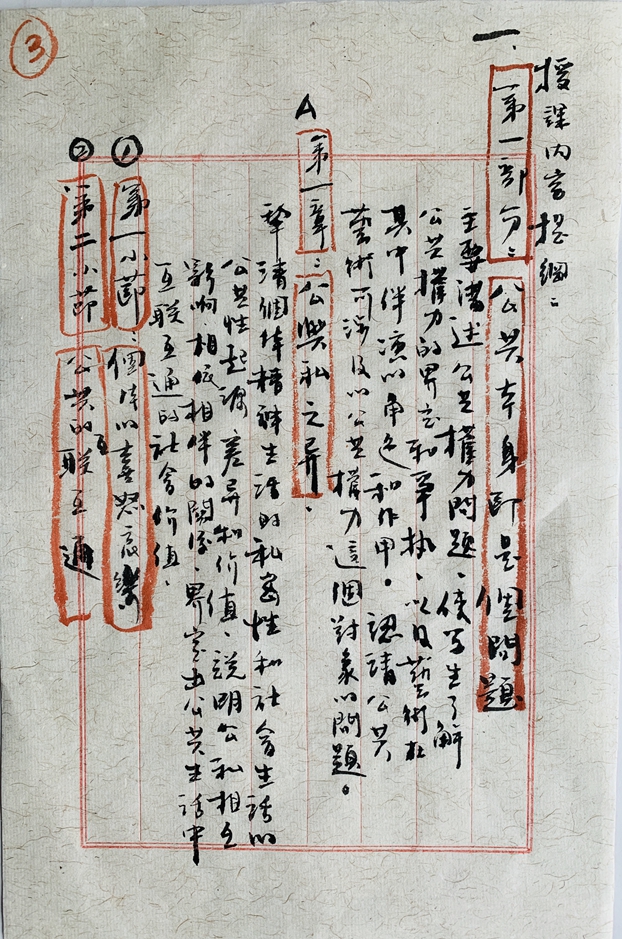 3
授課內容提綱:
一、第一部分:公共本身即是個問題
主要講述公共權力問題、使學生了解
公共權力的界定和爭執、以及藝術在
其中伴演的角色和作用。認清公共
藝術所涉及的公共權力這個對象的問題。
A
第一章:公與私之異、
釐清個体精神生活的私密性和社會生活的
公共性起源、差异和价值、說明公私相互
影响、相依相伴的關係、界定出公共生活中
互联互通的社會价值、
① 第一小節:個体的喜怒哀樂
② 第二小節 公共的互联互通